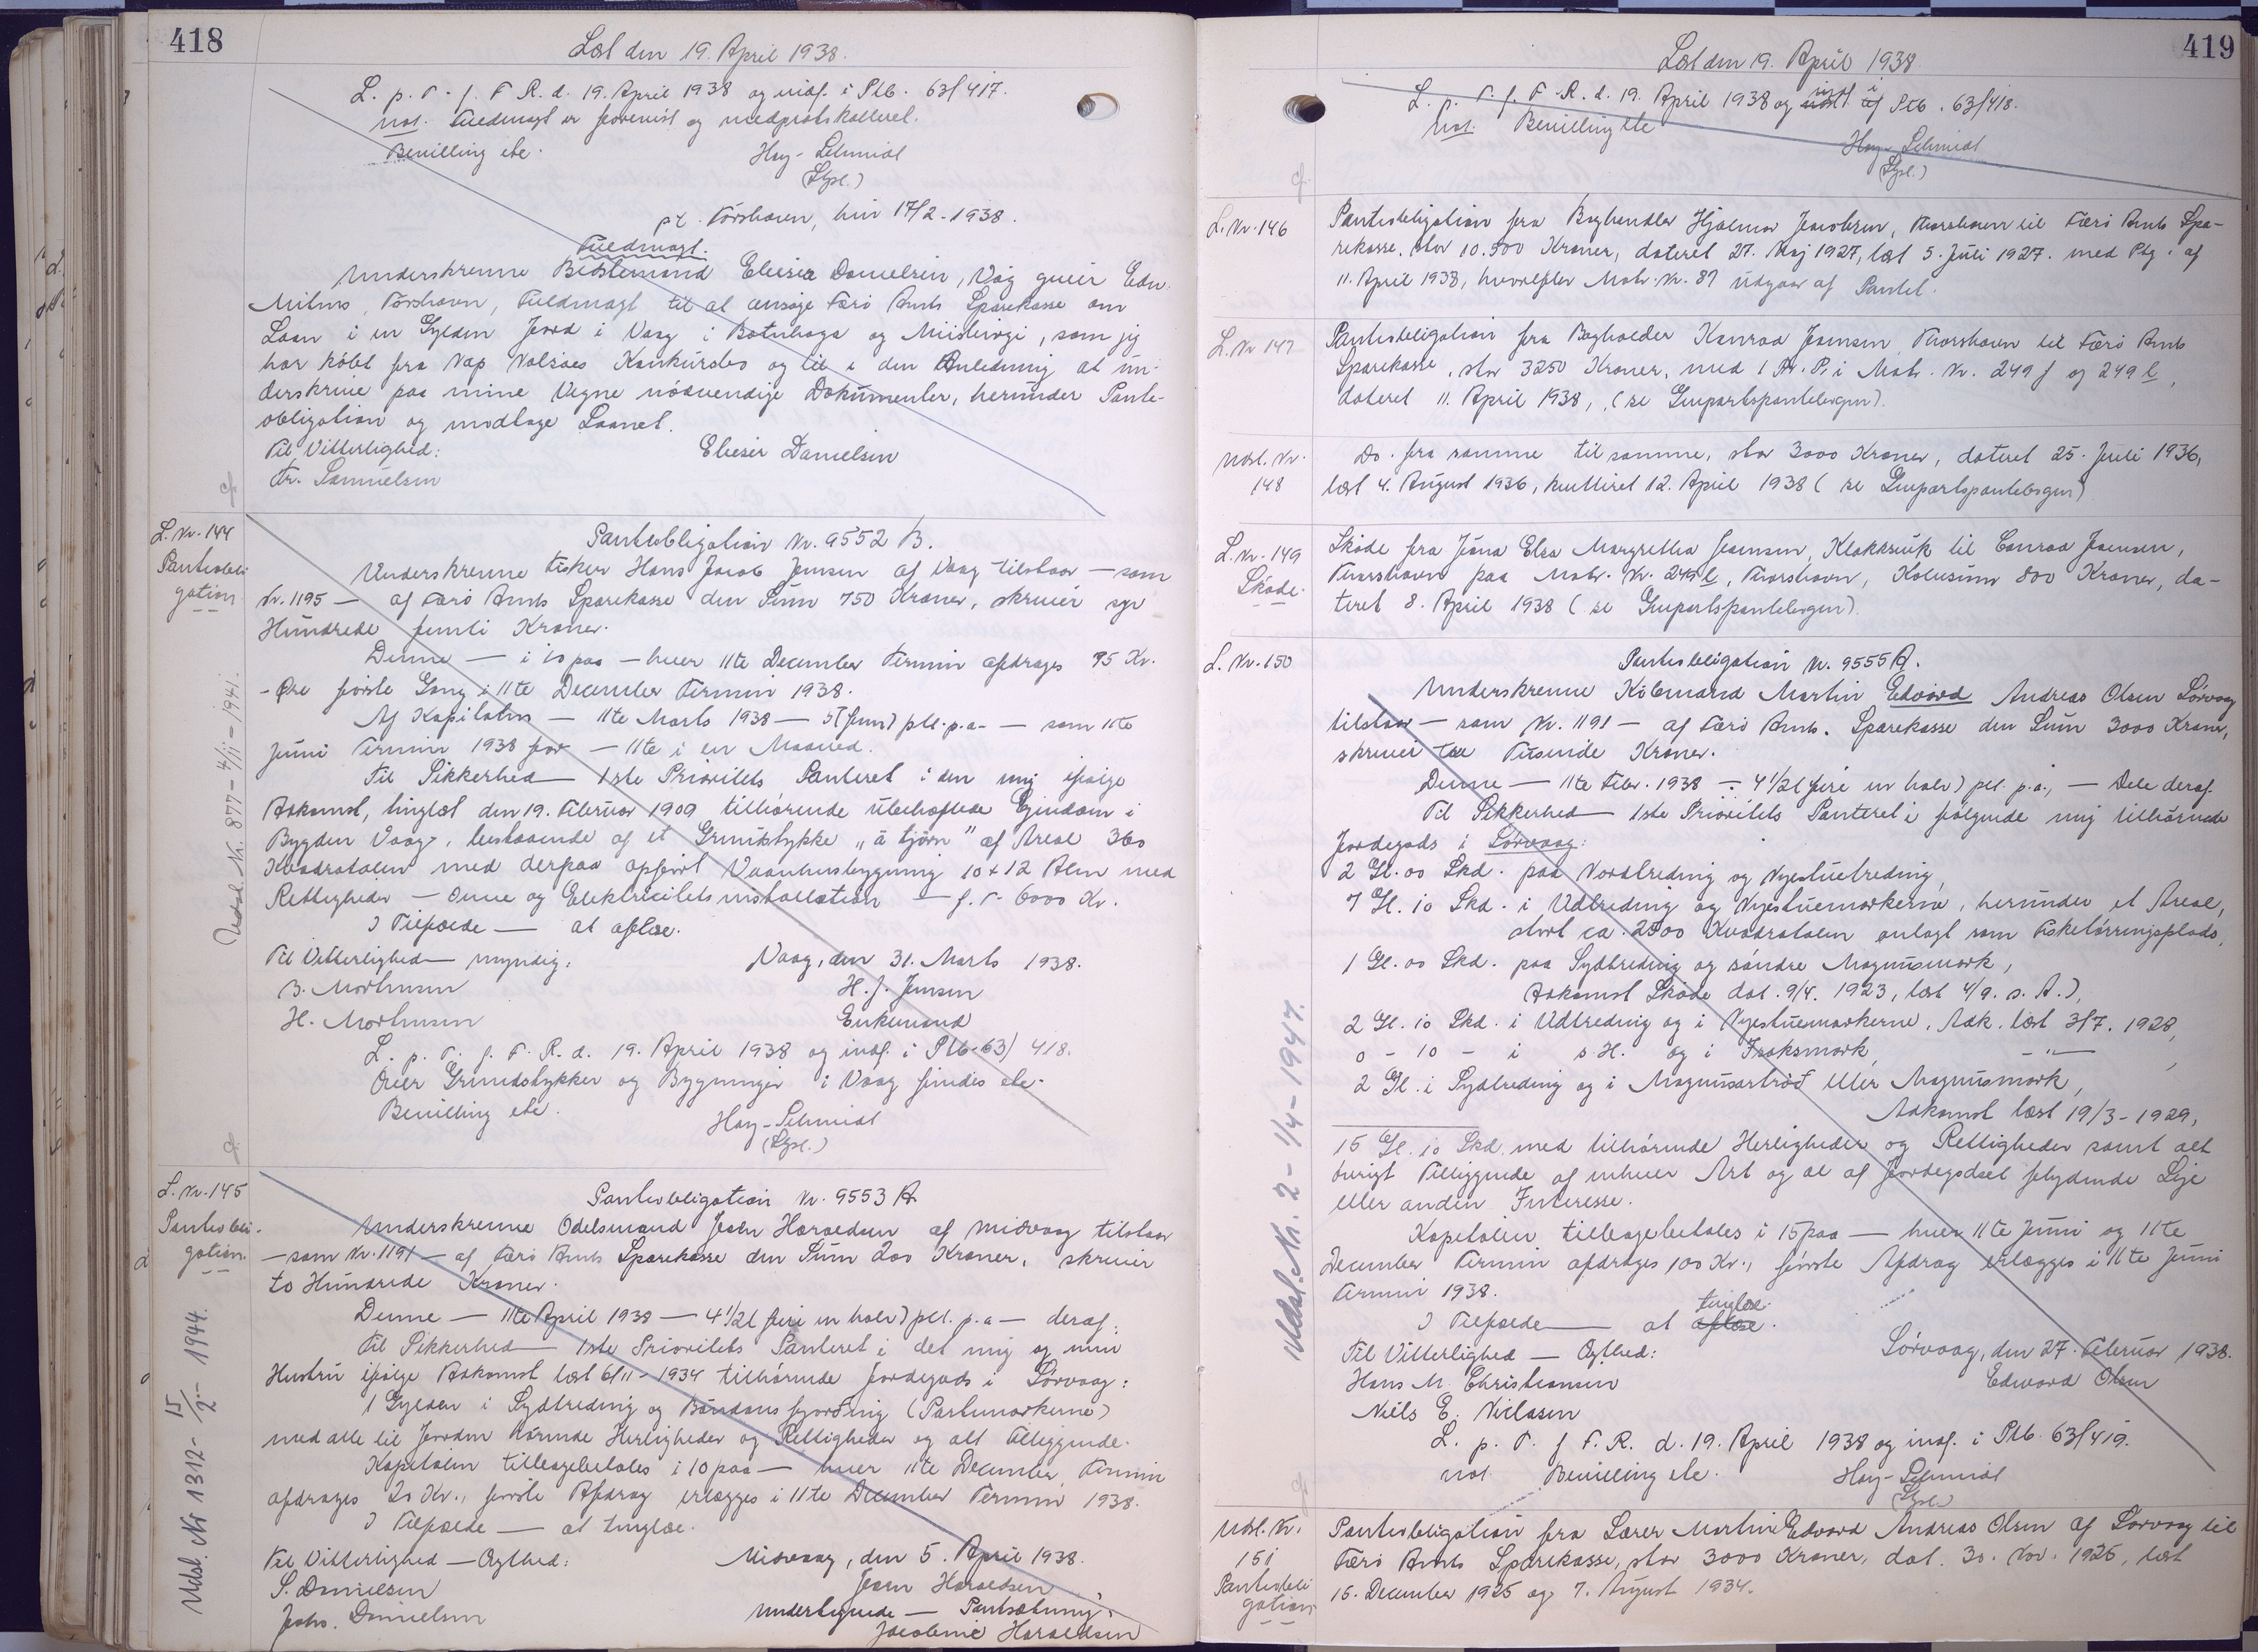 418
Læst den 19. April 1938.
L. p. T. f. F. R. d. 19. April 1938 og indf. i Ptb. 63/417.
not. Fuldmagt er forevist og medprotokolleret.
Bevilling etc.
Hoy-Schmidt
(Gzsl.)
pt. Torshavn, hin 17/2-1938.
Fuldmagt.
Underskrevne Bestemand Elieser Danielsen, Vág giver Edw.
Mitens, Torshavn, Fuldmagt til at ansøge Færø Amts Sparekasse om
Laan i en Gylden Jord i Vaag i Botnhaga og Misbirgi, som jeg
har købt fra Vap Valsøes Konkursbo og til i den Anledning at un-
derskrive paa mine Vegne nødvendige Dokumenter, herunder Pante-
obligation og modtage Laanet.
Til Vitterlighed:
Elieser Danielsen
Fr. Samuelsen
L. Nr. 144
Pantobli
gation
Udsl. Nr. 877 - 4/11 - 1941.
Pantobligation Nr. 9552 B.
Underskrevne Fisker Hans Jacob Jensen af Vaag tilstaar — som
Nr. 1195 — af Færø Amts Sparekasse den Sum 750 Kroner, skriver syv
Hundrede femti Kroner.
Denne — i 10 paa — hver 11te December Termin afdrages 75 Kr.
- Øre første Gang i 11te December Termin 1938.
Af Kapitalen — 11te Marts 1938 — 5 (fem) pct. p.a. — som 11te
Juni Termin 1938 for — 11te i en Maaned.
Til Sikkerhed — 1ste Prioritets Panteret i den mig ifølge
Adkomst, tinglæst den 19. Februar 1909 tilhørende ubehæftede Ejendom i
Bygden Vaag, bestaaende af et Grundstykke „á tjørn" af Areal 360
Kvadratalen med derpaa opført Vaanhusbygning 10 x 12 Alen med
Rettigheder — Ovne og Elektricitetsinstallation — f. T. 6000 Kr.
I Tilfælde — at aflæse.
Til Vitterlighed — myndig:
Vaag, den 31. Marts 1938.
B. Morthensen
H. J. Jensen
H. Morthensen
Enkemand
L. p. T. f. F. R. d. 19. April 1938 og indf. i Ptb. 63/418.
Over Grundstykker og Bygninger i Vaag findes etc.
Bevilling etc.
Hoy-Schmidt
(Gzsl.)
L. Nr. 145
Pantobli-
gation
Udsl. Nr 1312 - 15/2 - 1944.
Pantobligation Nr. 9553 A
Underskrevne Odelsmand John Haraldsen af Midvaag tilstaar
— som Nr. 1191 — af Færø Amts Sparekasse den Sum 200 Kroner, skriver
to Hundrede Kroner.
Denne — 11te April 1938 — 4 1/2 (firi en halv) pct. p.a — deraf.
Til Sikkerhed — 1ste Prioritets Panteret i det mig og min
Hustru ifølge Adkomst læst 6/11-1934 tilhørende Jordegods i Sørvaag:
1 Gylden i Sydtreding og Bóndans fjórðing (Partsmarkerne)
med alle til Jorden hørende Herligheder og Rettigheder og alt Tilliggende.
Kapitalen tilbagebetales i 10 paa — hver 11te December Termin
afdrages 20 Kr., første Afdrag erlægges i 11te December Termin 1938.
I Tilfælde — at tinglæse.
Til Vitterlighed — Ægthed:
Midvaag, den 5. April 1938.
S. Danielsen
John Haraldsen
Johs. Danielsen
Undertegnede — Pantsætning.
Jacobine Haraldsen
419
Læst den 19. April 1938
L. p. T. f. F. R. d. 19. April 1938 og indf. i Ptb. 63/418.
not. Bevilling etc
Hoy-Schmidt
(Gzsl.)
L. Nr. 146
Pantobligation fra Boghandler Hjalmar Jacobsen, Thorshavn til Færø Amts Spa-
rekasse, stor 10.500 Kroner, dateret 27. Maj 1927, læst 5. Juli 1927. med Ptg. af
11. April 1938, hvorefter Matr. Nr. 87 udgaar af Pantet.
L. Nr 147
Pantobligation fra Bogholder Konrad Joensen, Thorshavn til Færø Amts
Sparekasse, stor 3250 Kroner, med 1 Pr. P. i Matr. Nr. 249 f og 249 l,
dateret 11. April 1938, (se Genpartspantebogen).
Udsl. Nr.
148
Do. fra samme til samme, stor 3000 Kroner, dateret 25. Juli 1936,
læst 4. August 1936, kvitteret 12. April 1938 (se Genpartspantebogen)
L. Nr. 149
Skøde.
Skøde fra Jóna Elsa Margretha Joensen, Klakksvik til Conrad Joensen,
Thorshavn paa Matr. Nr. 249 l, Thorshavn, Købesum 800 Kroner, da-
teret 8. April 1938 (se Genpartspantebogen).
L. Nr. 150
Udsl. Nr. 2 - 1/4 - 1947.
Pantobligation Nr. 9555 A.
Underskrevne Købmand Martin Edvard Andreas Olsen Sørvaag
tilstaar — som Nr. 1191 — af Færø Amts. Sparekasse den Sum 3000 Kroner,
skriver tre Tusinde Kroner.
Denne — 11te Febr. 1938 — 4 1/2 (firi en halv) pct. p.a., — Dele deraf.
Til Sikkerhed — 1ste Prioritets Panteret i følgende mig tilhørende
Jordegods i Sørvaag:
2 Gl. 00 Skd. paa Nordtreding og Nyestuetreding,
7 Gl. 10 Skd. i Udtreding og Nyestuemarkerne, herunder et Areal,
stort ca. 2500 Kvadratalen anlagt som Fisketørringsplads,
1 Gl. 00 Skd. paa Sydtreding og søndre Magnusmork,
Adkomst Skøde dat. 9/4. 1923, læst 4/9. s. A.),
2 Gl. 10 Skd. i Udtreding og i Nyestuemarkerne, Adk. læst 3/7. 1928,
0 - 10 - i s. H. og i Isaksmork, — " —,
2 Gl. i Sydtreding og i Magnusartrøð eller Magnusmork,
Adkomst læst 19/3-1929,
15 Gl. 10 Skd. med tilhørende Herligheder og Rettigheder samt alt
øvrigt Tilliggende af enhver Art og al af Jordegodset flydende Leje
eller anden Interesse.
Kapitalen tilbagebetales i 15 paa — hver 11te Juni og 11te
December Termin afdrages 100 Kr., første Afdrag erlægges i 11te Juni
Termin 1938.
I Tilfælde — at aflæse tinglæse.
Til Vitterlighed — Ægthed:
Sørvaag, den 27. Februar 1938.
Hans M. Christiansen
Edward Olsen
Niels E. Niclasen
L. p. T. f F. R. d. 19. April 1938 og indf. i Ptb. 63/419.
not. Bevilling etc.
Hoy-Schmidt
(Gzsl.)
Udsl. Nr.
151
Pantobli
gation
Pantobligation fra Lærer Martin Edvard Andreas Olsen af Sørvaag til
Færø Amts Sparekasse, stor 3000 Kroner, dat. 30. Nov. 1925, læst
16. December 1925 og 7. August 1934.